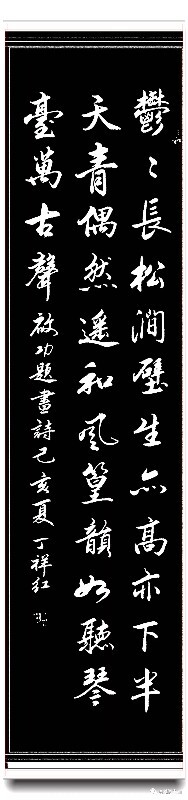 鬱〻長松澗壁生亦高亦下半
天青偶然遥和風篁韻如聽琴
臺萬古聲啟功題畫詩己亥夏丁祥红